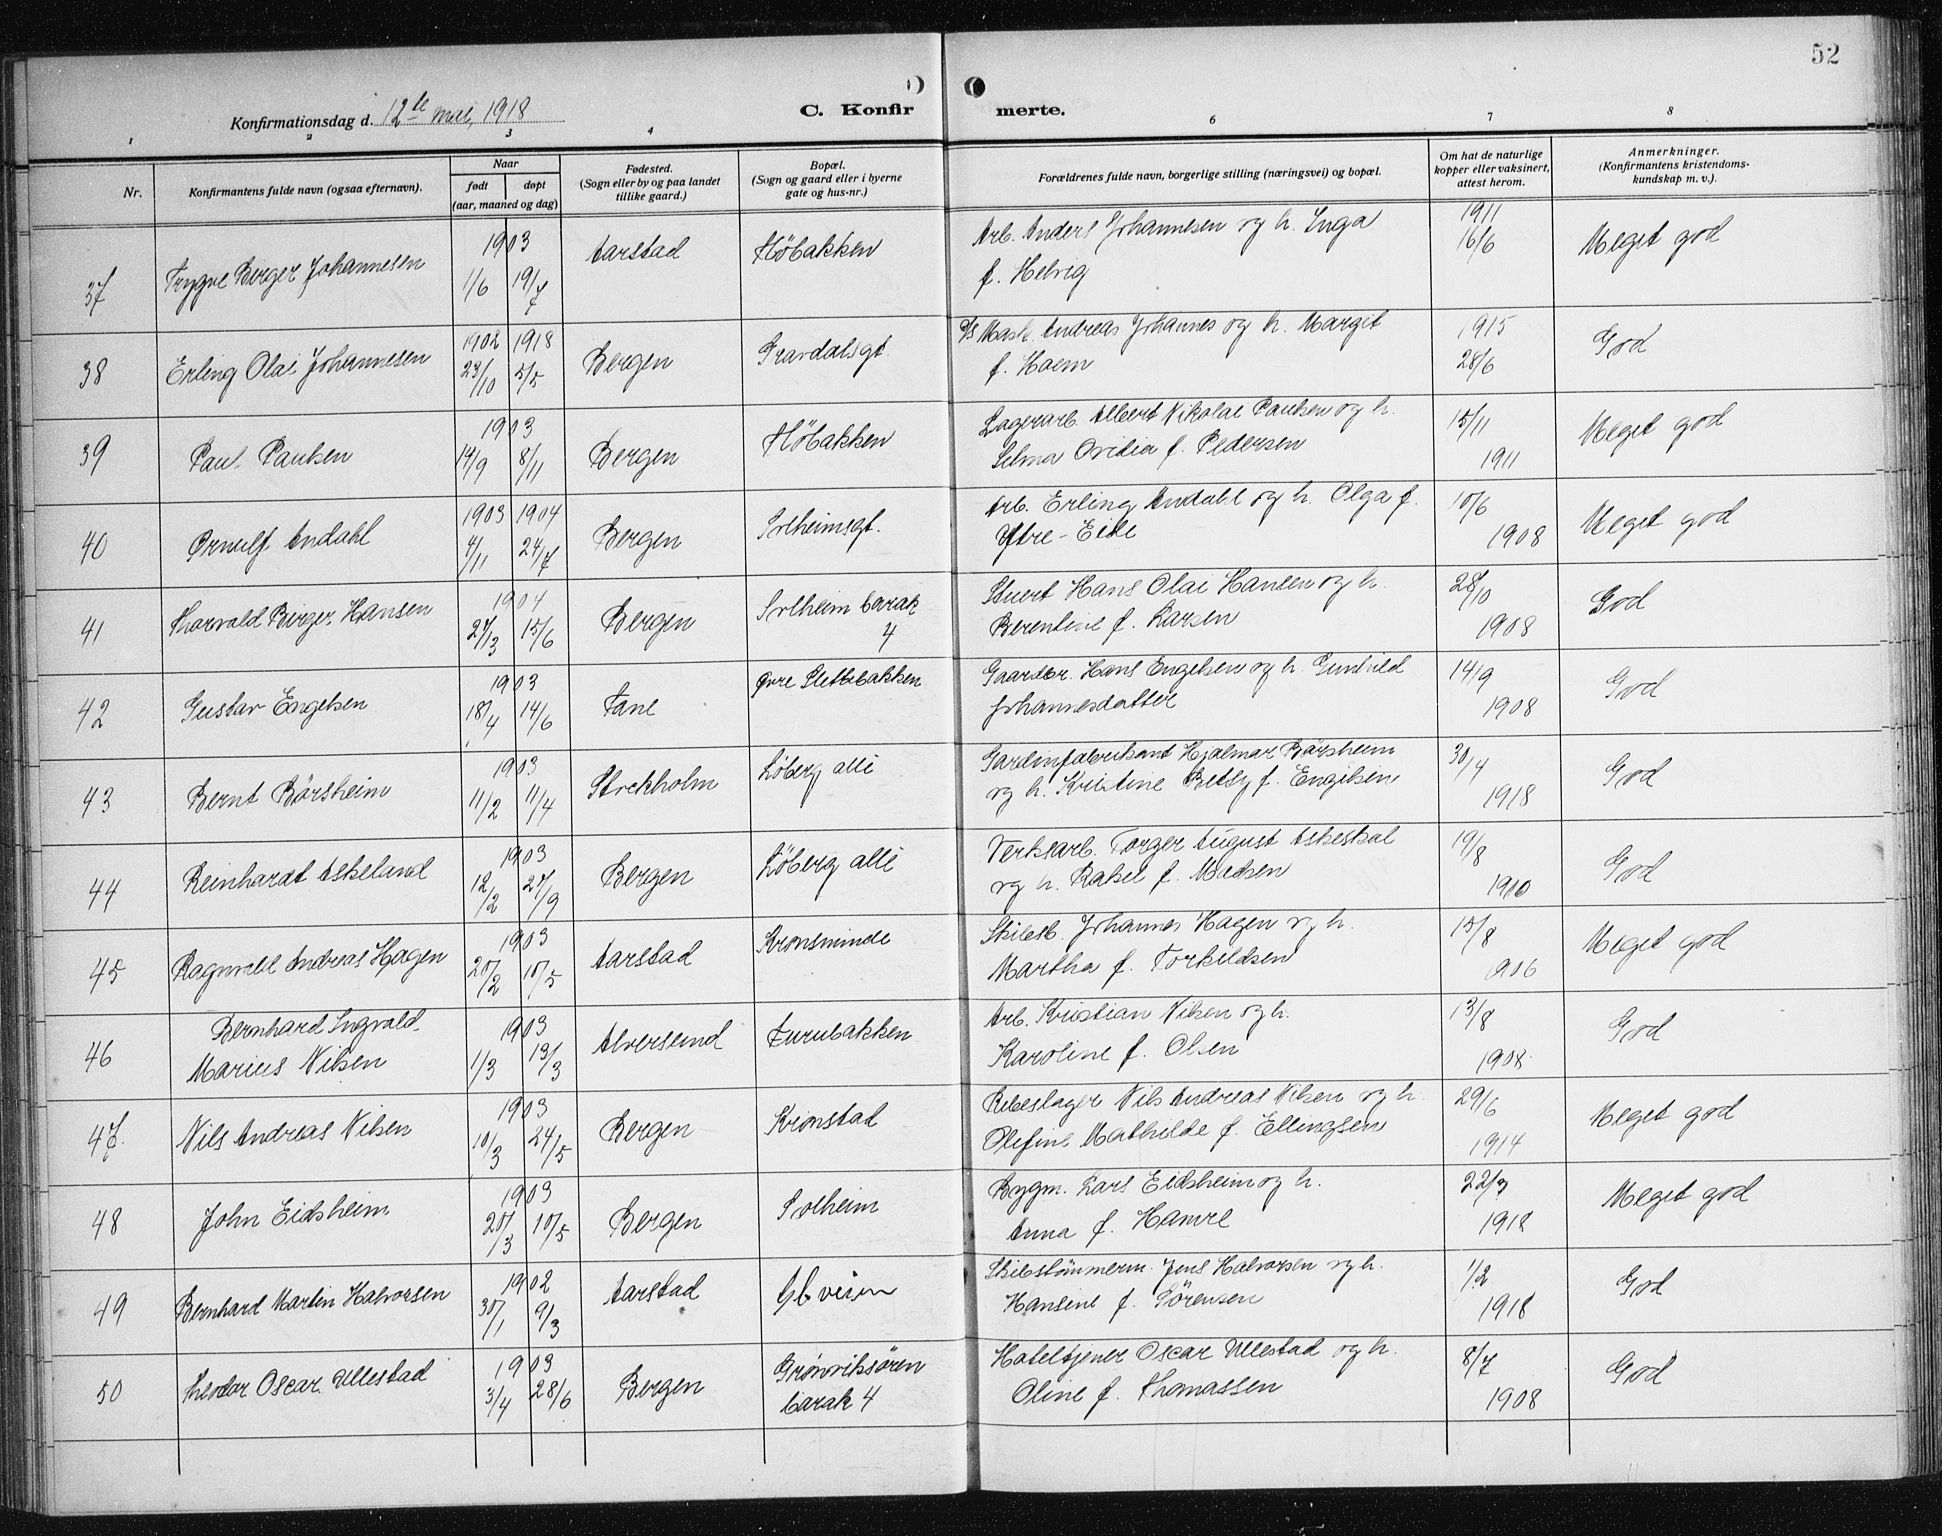 52
Konfirmationsdag d. 12te mai, 1918
C. Konfirmerte.
1 2 3 4 6 7 8
Nr.
Konfirmantens fulde navn (ogsaa efternavn).
Naar
født døpt
(aar, maaned og dag)
Fødested.
(Sogn eller by og paa landet
tillike gaard.)
Bopæl.
(Sogn og gaard eller i byerne
gate og hus-nr.)
Forældrenes fulde navn, borgerlige stilling (næringsvei) og bopæl.
Om hat de naturlige
kopper eller vaksinert,
attest herom.
Anmerkninger.
(Konfirmantens kristendoms-
kundskap m. v.).
1903 Aarstad Höbakken Arb. Anders Johannesen og h. Inga 1911 Meget god
37 Trygve Berger Johannesen 1/6 19/7 f. Helvig 16/6
1902 1918 Mask. Andreas Johannes og h. Margit 1915 God
38 Erling Olai Johannesen 23/10 5/5 Bergen f. Haem 28/6
1903 Höbakken Lagerarb. Albert Nikolai Paulsen og h. 15/11 Meget god
39 Paul Paulsen 14/9 8/11 Bergen Selma Ovidia f. Pedersen 1911
1903 1904 Solheimsgt. Arb. Erling Andahl og h. Olga f. 10/6 Meget god
40 Ørnulf Andahl 4/11 24/7 Bergen Ytre-Eide 1908
1904 Solheim barak Stuert Hans Olai Hansen og h. 28/10 God
41 Thorvald Birger Hansen 27/3 15/6 Bergen 4 Berentine f. Larsen 1908
1903 Øvre Slettebakken Gaardbr. Hans Engelsen og h. Gunhild 14/9 God
42 Gustav Engelsen 18/4 14/6 Fane Johannesdatter 1908
1903 Löberg alli Gardinfabrikant Hjalmar Börsheim 30/4 God
43 Bernt Börsheim 11/2 11/4 Stockholm og h. Kristine Betsy f. Engelsen 1918
1903 Löberg alli Verksarb. Torger August Askeskal 19/8 God
44 Reinhardt Askeland 12/2 27/9 Bergen og h. Rakel f. Madsen 1910
1903 Kronsminde Skibsb. Johannes Hagen og h. 15/8 Meget god
45 Ragnvald Andreas Hagen 20/2 10/5 Aarstad Martha f. Torkildsen 1906
Bernhard Ingvald 1903 Furubakken Arb. Kristian Nilsen og h. 13/8 God
46 Marius Nilsen 1/3 13/3 Alversund Karoline f. Olsen 1908
1903 Kronstad Rebeslager Nils Andreas Nilsen og h. 29/6 Meget god
47. Nils Andreas Nilsen 10/3 24/5 Bergen Olefine Mathilde f. Ellingsen 1914
1903 Solheim Bygm. Lars Eidsheim og h. 22/3 Meget god
48 John Eidsheim 20/3 10/5 Bergen Anna f. Hamre 1918
1902 Skibstömmerm. Jens Halvorsen og h. 1/2 God
49 Bernhard Martin Halvorsen 30/1 9/3 Aarstad Hansine f. Sörensen 1918
1903 Grönviksören Hoteltjener Oscar Ullestad og h. 8/7 God
50 Theodor Oscar Ullestad 3/4 28/6 Bergen barak 4 Oline f. Thomassen 1908